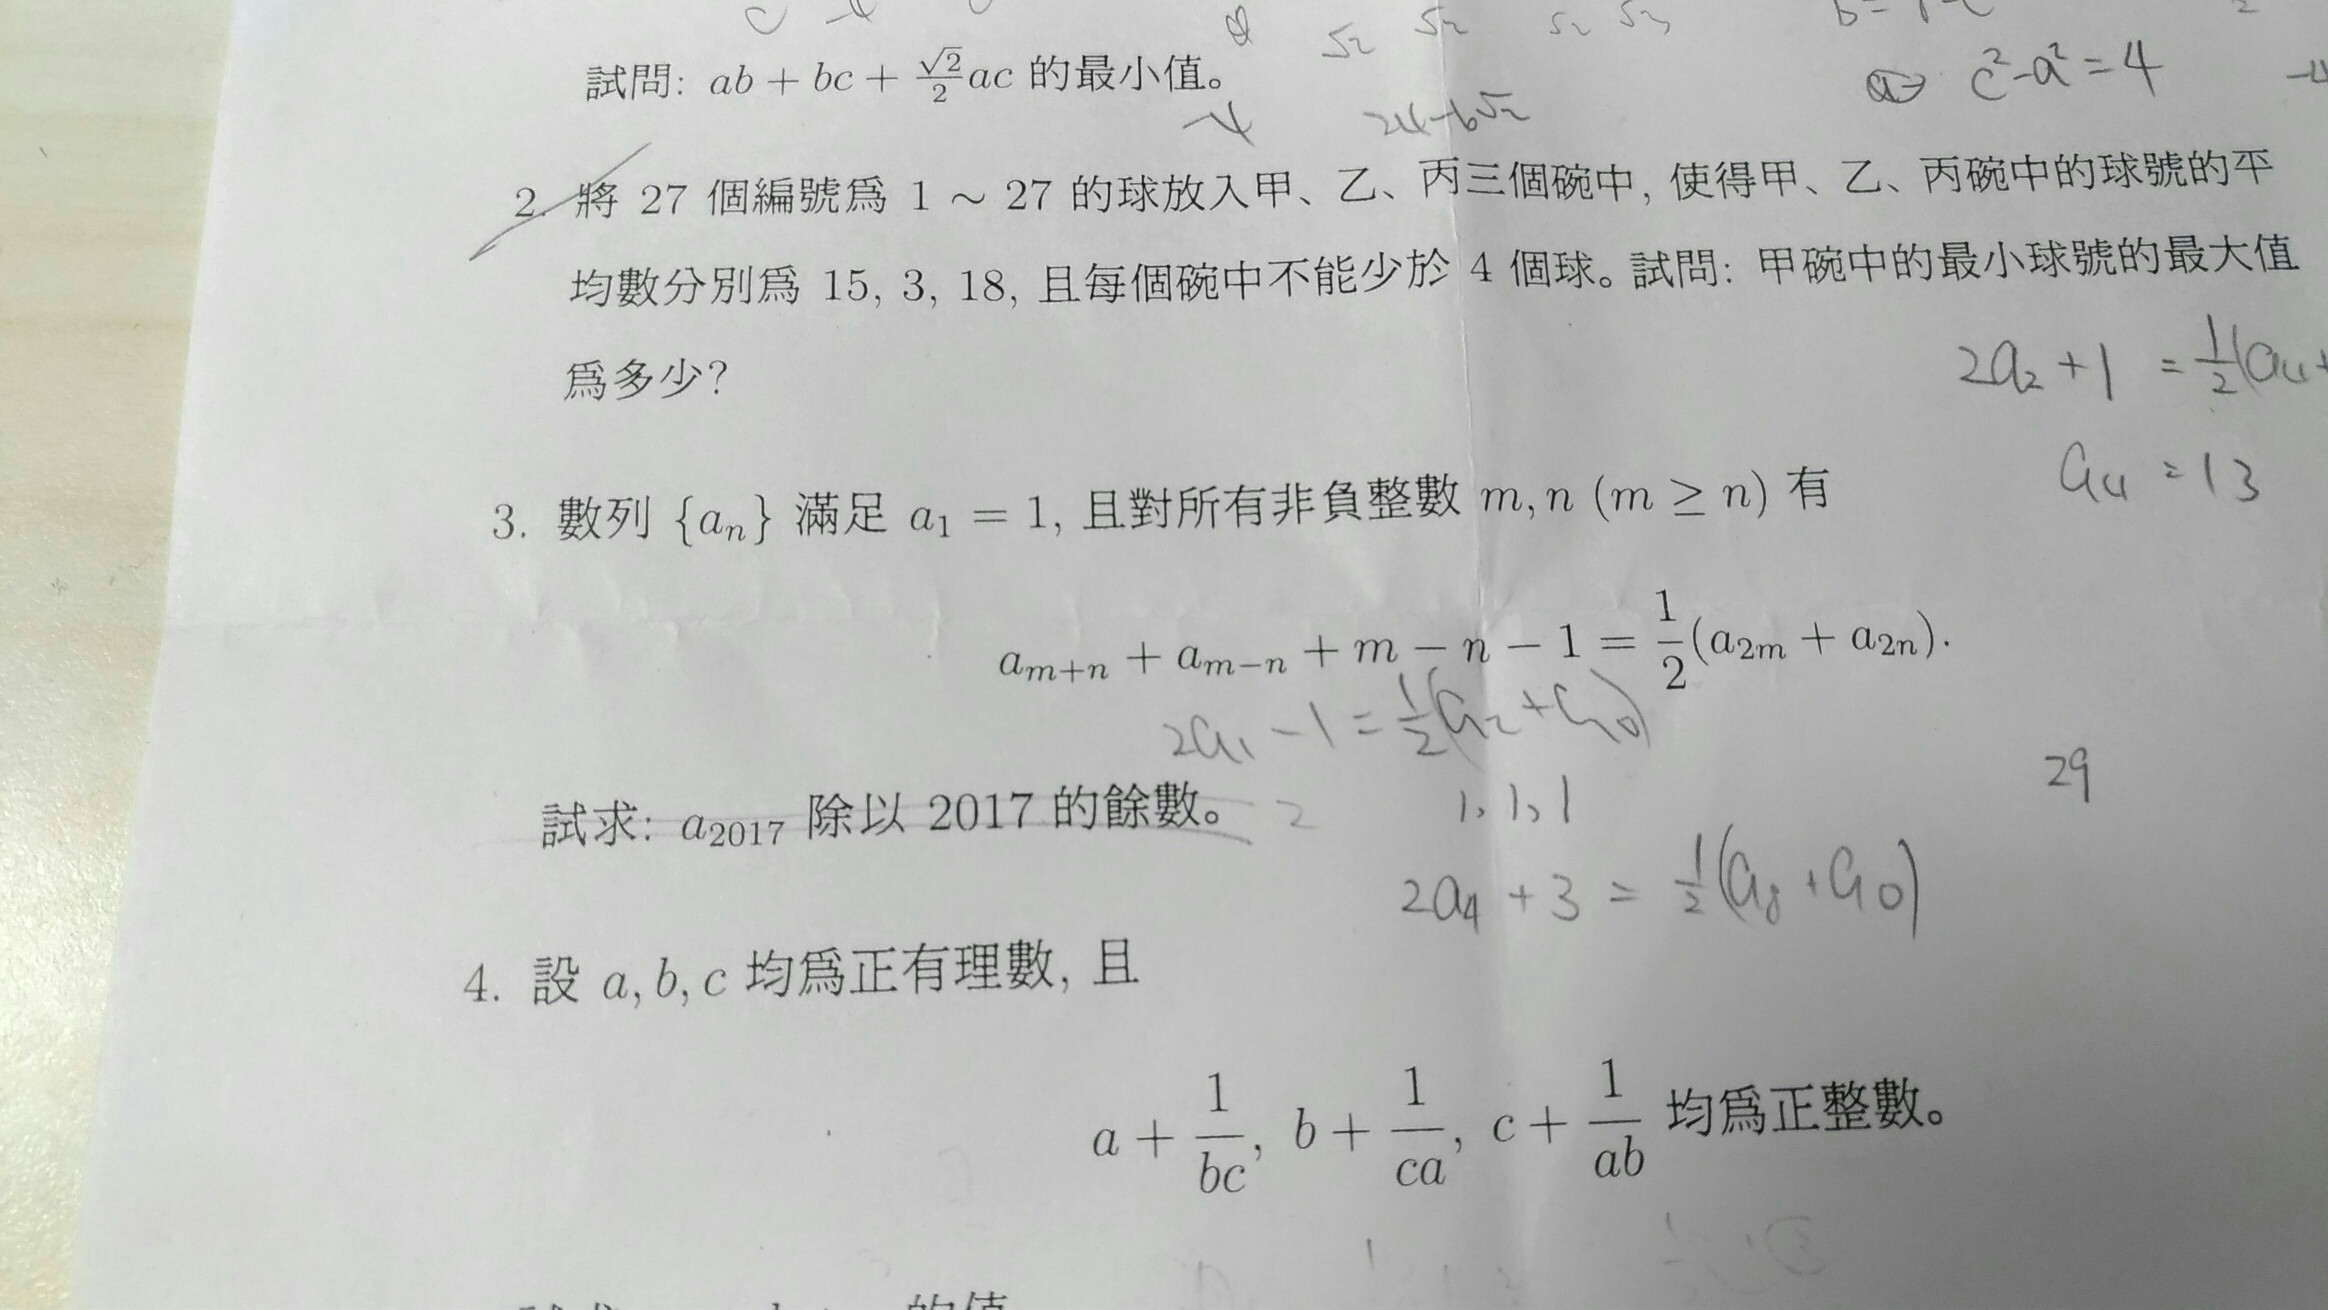 試問: ab + bc + \frac{\sqrt{2}}{2}ac 的最小值。
c²-a²=4
-4 24-6√2
2. 將 27 個編號爲 1 ∼ 27 的球放入甲、乙、丙三個碗中, 使得甲、乙、丙碗中的球號的平
均數分別爲 15, 3, 18, 且每個碗中不能少於 4 個球。試問: 甲碗中的最小球號的最大值
爲多少?
2a₂+1 = ½(a₄+
a₄ = 13
3. 數列 {aₙ} 滿足 a₁ = 1, 且對所有非負整數 m, n (m ≥ n) 有
a_{m+n} + a_{m−n} + m − n − 1 = \frac{1}{2}(a_{2m} + a_{2n}).
2a₁ - 1 = ½(a₂+a₀)
29
試求: a₂₀₁₇ 除以 2017 的餘數。 2 1, 1, 1
2a₄ + 3 = ½(a₈ + a₀)
4. 設 a, b, c 均爲正有理數, 且
a + \frac{1}{bc}, b + \frac{1}{ca}, c + \frac{1}{ab} 均爲正整數。